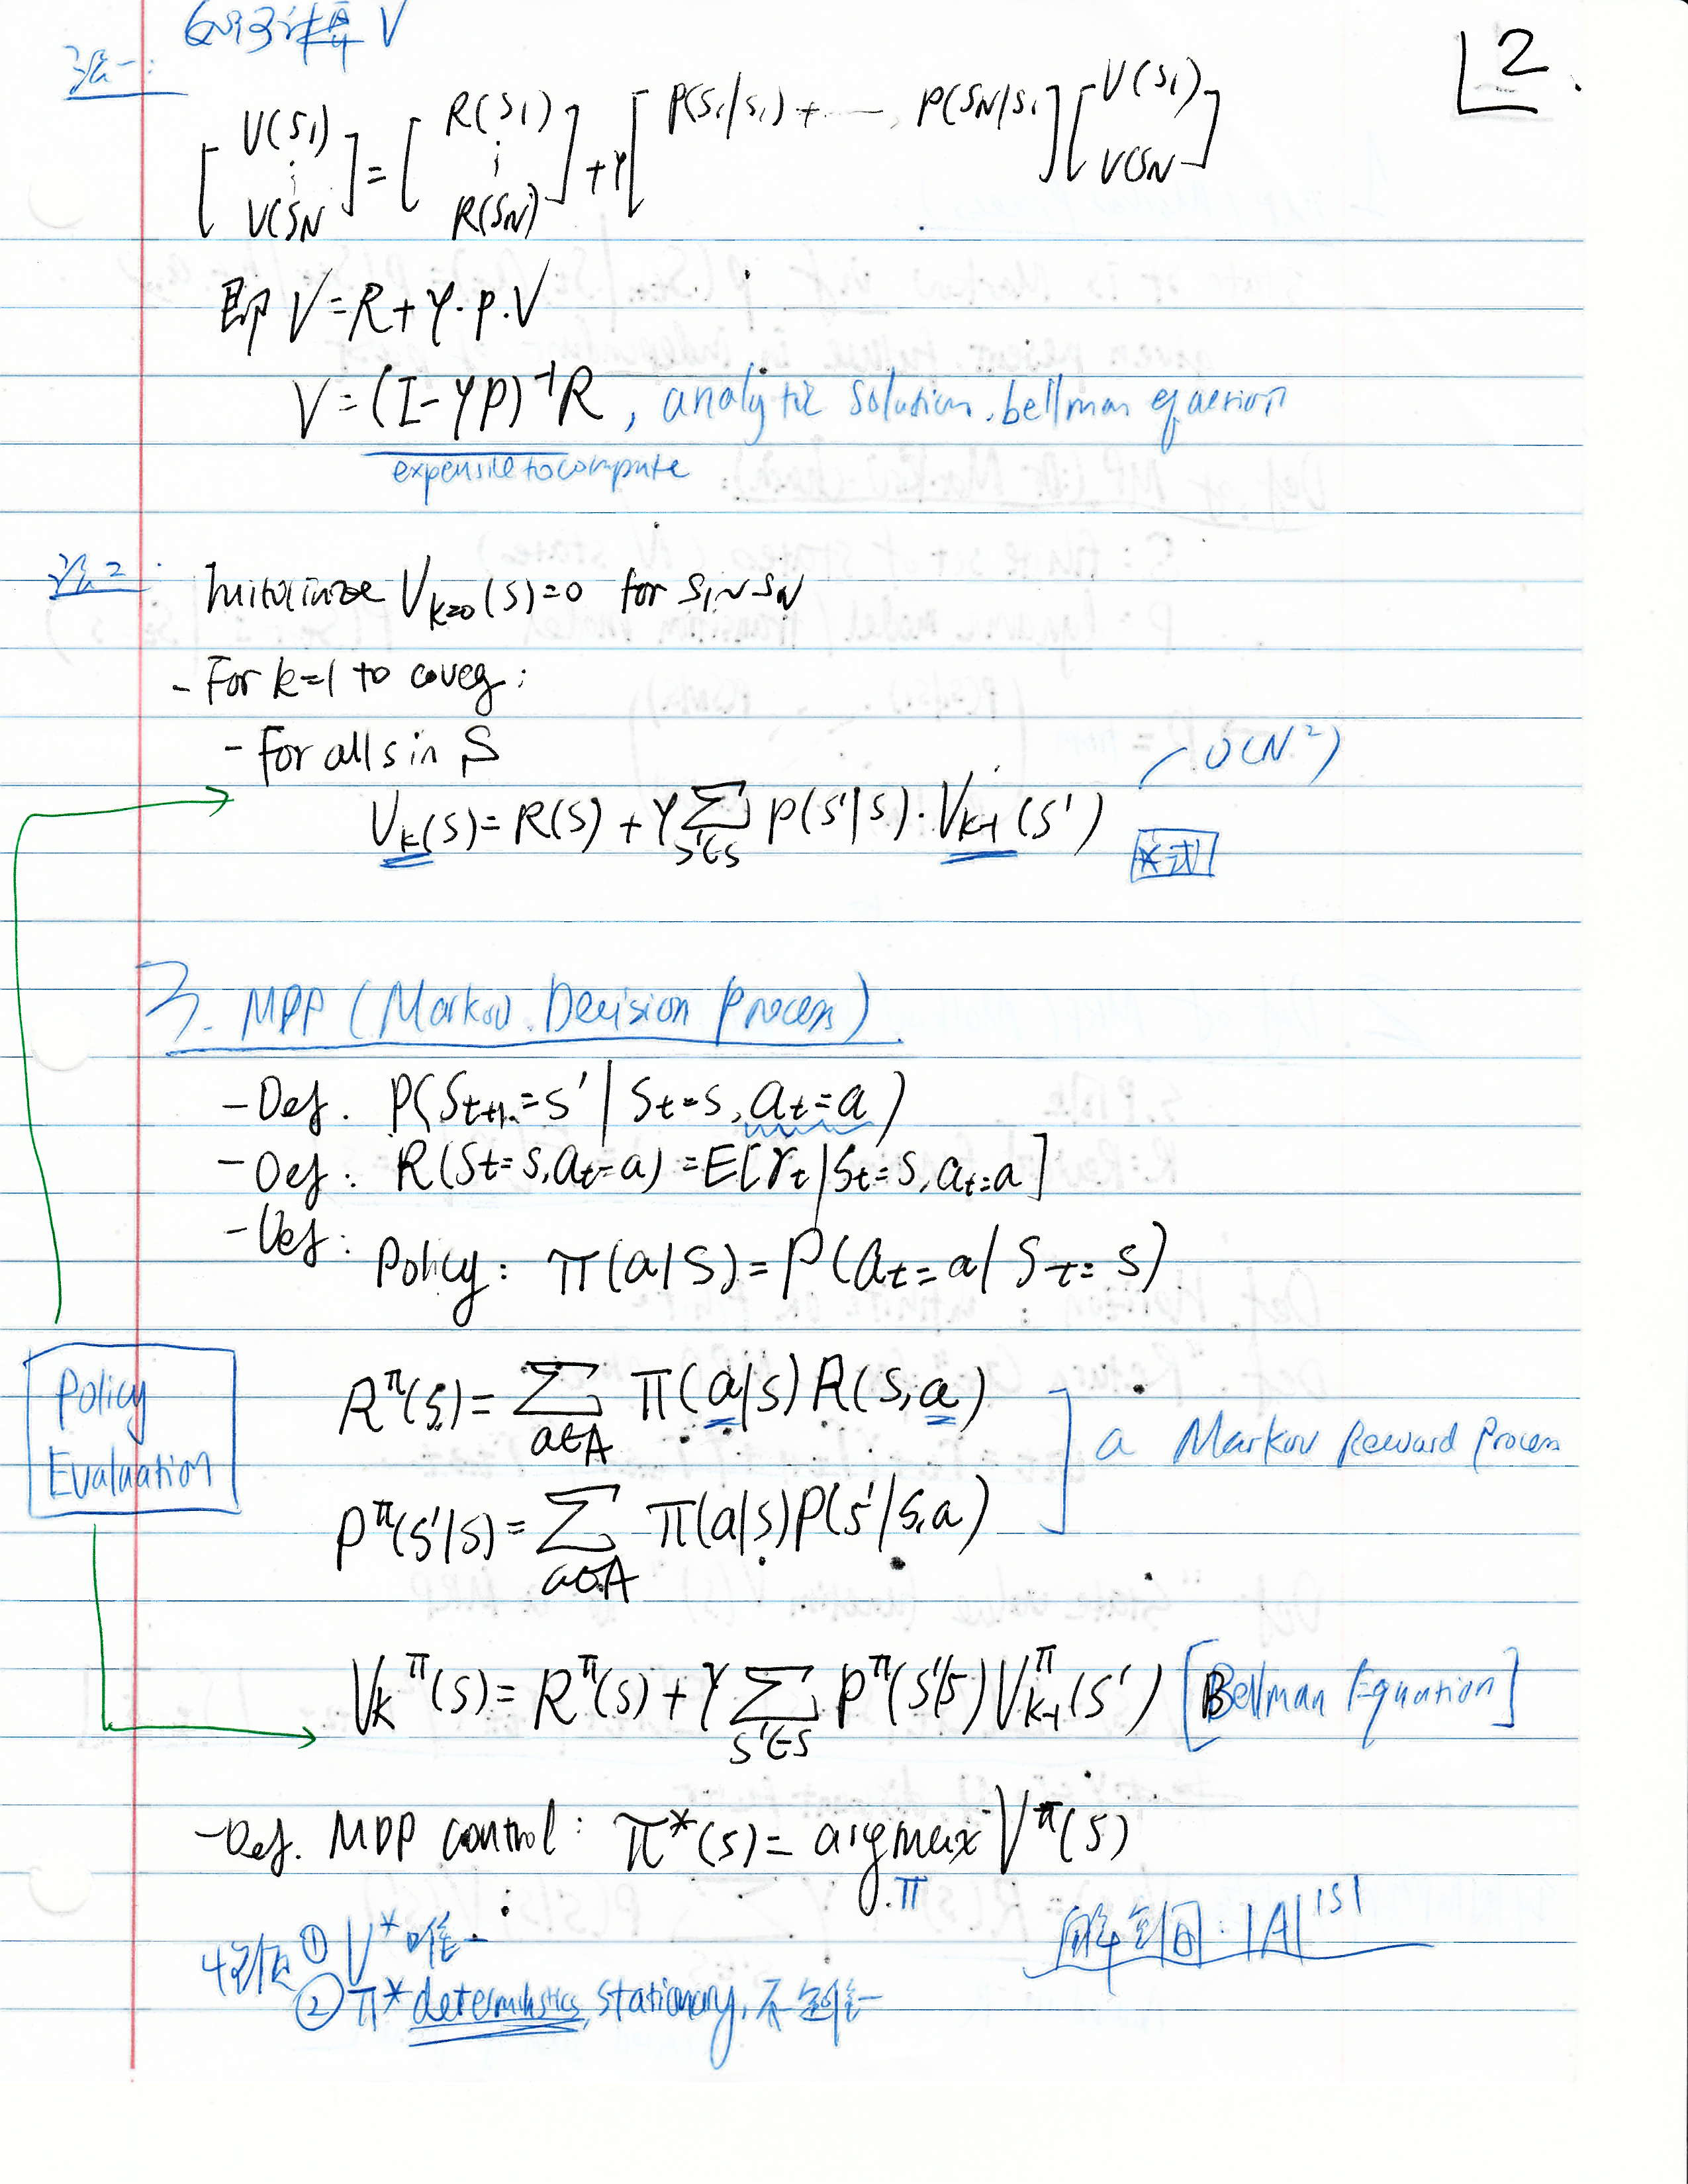 如何计算 V
L2
法一:
[V(s1) ⋮ V(SN] = [R(s1) ⋮ R(SN)] + γ[P(s1/s1) + ⋯ P(SN/s1][V(s1) V(SN]
即 V=R+γ·P·V
V=(I-γP)⁻¹R, analytic solution. bellman equation
expensive to compute
法2: Initialize V_{k=0}(s)=0 for s1~sN
- For k=1 to coveg:
- For all s in S
O(N²)
V_k(s)=R(s)+γ∑_{s'∈s} P(s'|s)·V_{k-1}(s')
*式
3. MDP (Markov Decision Process)
- Def. P(S_{t+1}=s' | S_t=s, a_t=a)
- Def: R(S_t=s, a_t=a) = E[r_t | S_t=s, a_t=a]
- Def: Policy: π(a|s)=P(a_t=a | S_t=s)
Policy Evaluation
R^π(s)=∑_{a∈A} π(a|s)R(s,a)
a Markov Reward Process
P^π(s'|s)=∑_{a∈A} π(a|s)P(s'|s,a)
V_k^π(s)=R^π(s)+γ∑_{s'∈s} P^π(s'|s)V_{k-1}^π(s') [Bellman Equation]
- Def. MDP control: π*(s)=argmax_π V^π(s)
① V*唯一
解空间: |A|^|S|
② π* deterministics, stationary, 不定唯一